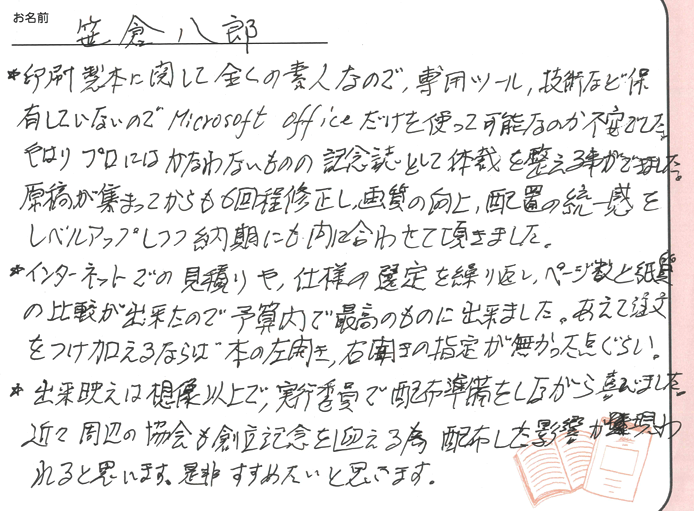 お名前 笹倉八郎
*印刷製本に関して全くの素人なので、専用ツール、技術など保
有していないのでMicrosoft officeだけを使って可能なのか不安でした。
やはりプロにはかなわないものの記念誌として体裁を整える事ができました。
原稿が集まってからも6回程修正し、画質の向上、配置の統一感を
レベルアップしつつ納期にも間に合わせて頂きました。
*インターネットでの見積りや、仕様の選定を繰り返し、ページ数と紙質
の比較が出来たので予算内で最高のものに出来ました。あえて注文
をつけ加えるならば本の左開き、右開きの指定が無かった点ぐらい。
*出来映えは想像以上で、実行委員で配布準備をしながら喜びました。
近々周辺の協会も創立記念を迎える為配布した影響が現わ
れると思います。是非すすめたいと思います。